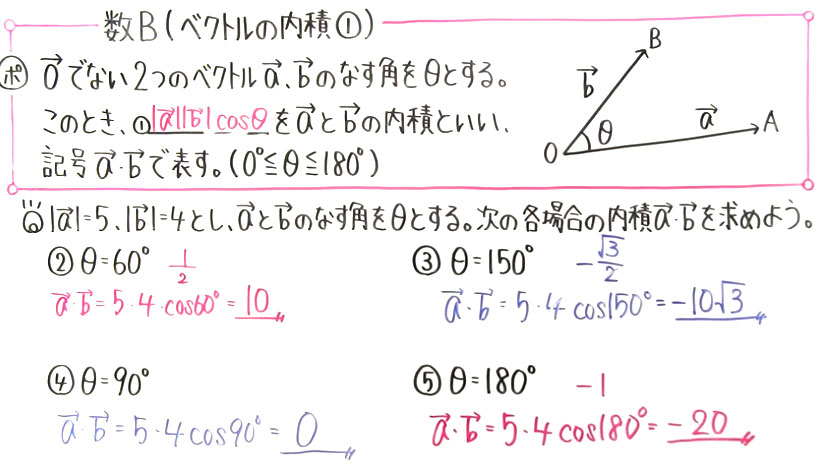 数B(ベクトルの内積①)
ポ 0⃗でない2つのベクトルa⃗、b⃗のなす角をθとする。
このとき、①|a⃗||b⃗|cosθをa⃗とb⃗の内積といい、
記号a⃗·b⃗で表す。(0°≦θ≦180°)
B
b⃗
θ
a⃗
A
O
|a⃗|=5、|b⃗|=4とし、a⃗とb⃗のなす角をθとする。次の各場合の内積a⃗·b⃗を求めよう。
② θ=60° 1/2
a⃗·b⃗=5·4·cos60°=10
③ θ=150° -√3/2
a⃗·b⃗=5·4cos150°=-10√3
④ θ=90°
a⃗·b⃗=5·4cos90°=0
⑤ θ=180° -1
a⃗·b⃗=5·4cos180°=-20